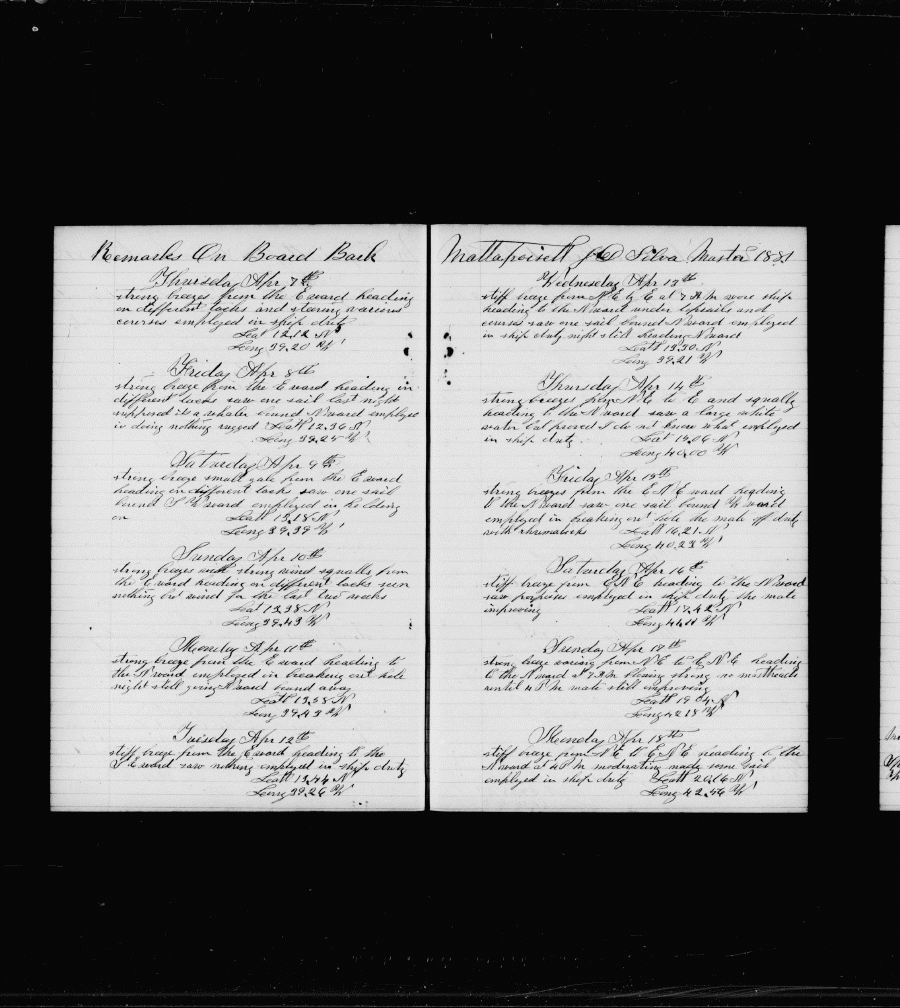 Remarks On Board Bark
Thursday Apr 7th
strong breezes from the E ward heading
on different tacks and stearing various
courses employed in ship duty
Lat 12.12 N
Long 39.20 W
Friday Apr 8th
strong breeze from the E ward heading in
different tacks saw one sail last night
supposed its a whaler bound N ward employed
in doing nothing rugged Latt 12.36 N
Long 39.25 W
Saturday Apr 9th
strong breeze small gale from the E ward
heading in different tacks saw one sail
bound S W ward employed in holding
on Latt 13.18 N
Long 39.39 W
Sunday Apr 10th
strong breezes with strong wind squalls from
the E ward heading on different tacks seen
nothing but wind for the last two weeks
Lat 13.38 N
Long 39.43 W
Monday Apr 11th
strong breeze from the E ward heading to
the N ward employed in breaking out hole
night still going N ward bound away
Latt 13.58 N
Long 39.43 W
Tuesday Apr 12th
stiff breeze from the E ward heading to the
S E ward saw nothing employed in ship duty
Latt 13.44 N
Long 39.26 W
Mattapoisett J D Silva Master 1881
Wednesday Apr 13th
stiff breeze from N E by E at 7 A M wore ship
heading to the N ward under topsails and
courses saw one sail bound N ward employed
in ship duty night still heading N ward
Latt 13.30 N
Long 39.21 W
Thursday Apr 14th
strong breezes from N E to E and squally
heading to the N ward saw a large white
water but proved I do not know what employed
in ship duty Latt 15.06 N
Long 40.00 W
Friday Apr 15th
strong breezes from the E N E ward heading
to the N ward saw one sail bound W ward
employed in breaking out hole the mate off duty
with rhumaticks Latt 16.21 N
Long 40.23 W
Saturday Apr 16th
stiff breeze from E N E heading to the N ward
saw porpoises employed in ship duty the mate
improving Latt 17.42 N
Long 41.11 W
Sunday Apr 17th
strong breeze varying from N E to E N E heading
to the N ward at 7 A M blowing strong no mastheads
until 4 P M mate still improving
Latt 19.04 N
Long 42.18 W
Monday Apr 18th
stiff breeze from N E to E N E heading to the
N ward at 4 P M moderating made some sail
employed in ship duty Latt 20.16 N
Long 42.56 W